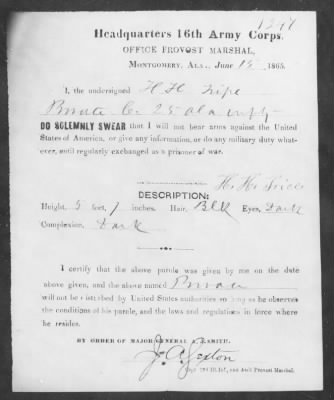 1217
Headquarters 16th Army Corps,
OFFICE PROVOST MARSHAL,
MONTGOMERY, ALA., June 15 1865.
I, the undersigned H. H.
Private Co. 25 Ala
DO SOLEMNLY SWEAR that I will not bear arms against the United
States of America, or give any information, or do any military duty what-
ever, until regularly exchanged as a prisoner of war.
H. H.
DESCRIPTION:
Height, 5 feet, 7 inches. Hair, Blk Eyes, Dark
Complexion, Dark
I certify that the above parole was given by me on the date
above given, and the above named Private
will not be disturbed by United States authorities so long as he observes
the conditions of his parole, and the laws and regulations in force where
he resides.
BY ORDER OF MAJOR GENERAL A. J. SMITH.
J. A. Sexton
Capt. 72d Ill. Inf., and Ass't Provost Marshal.